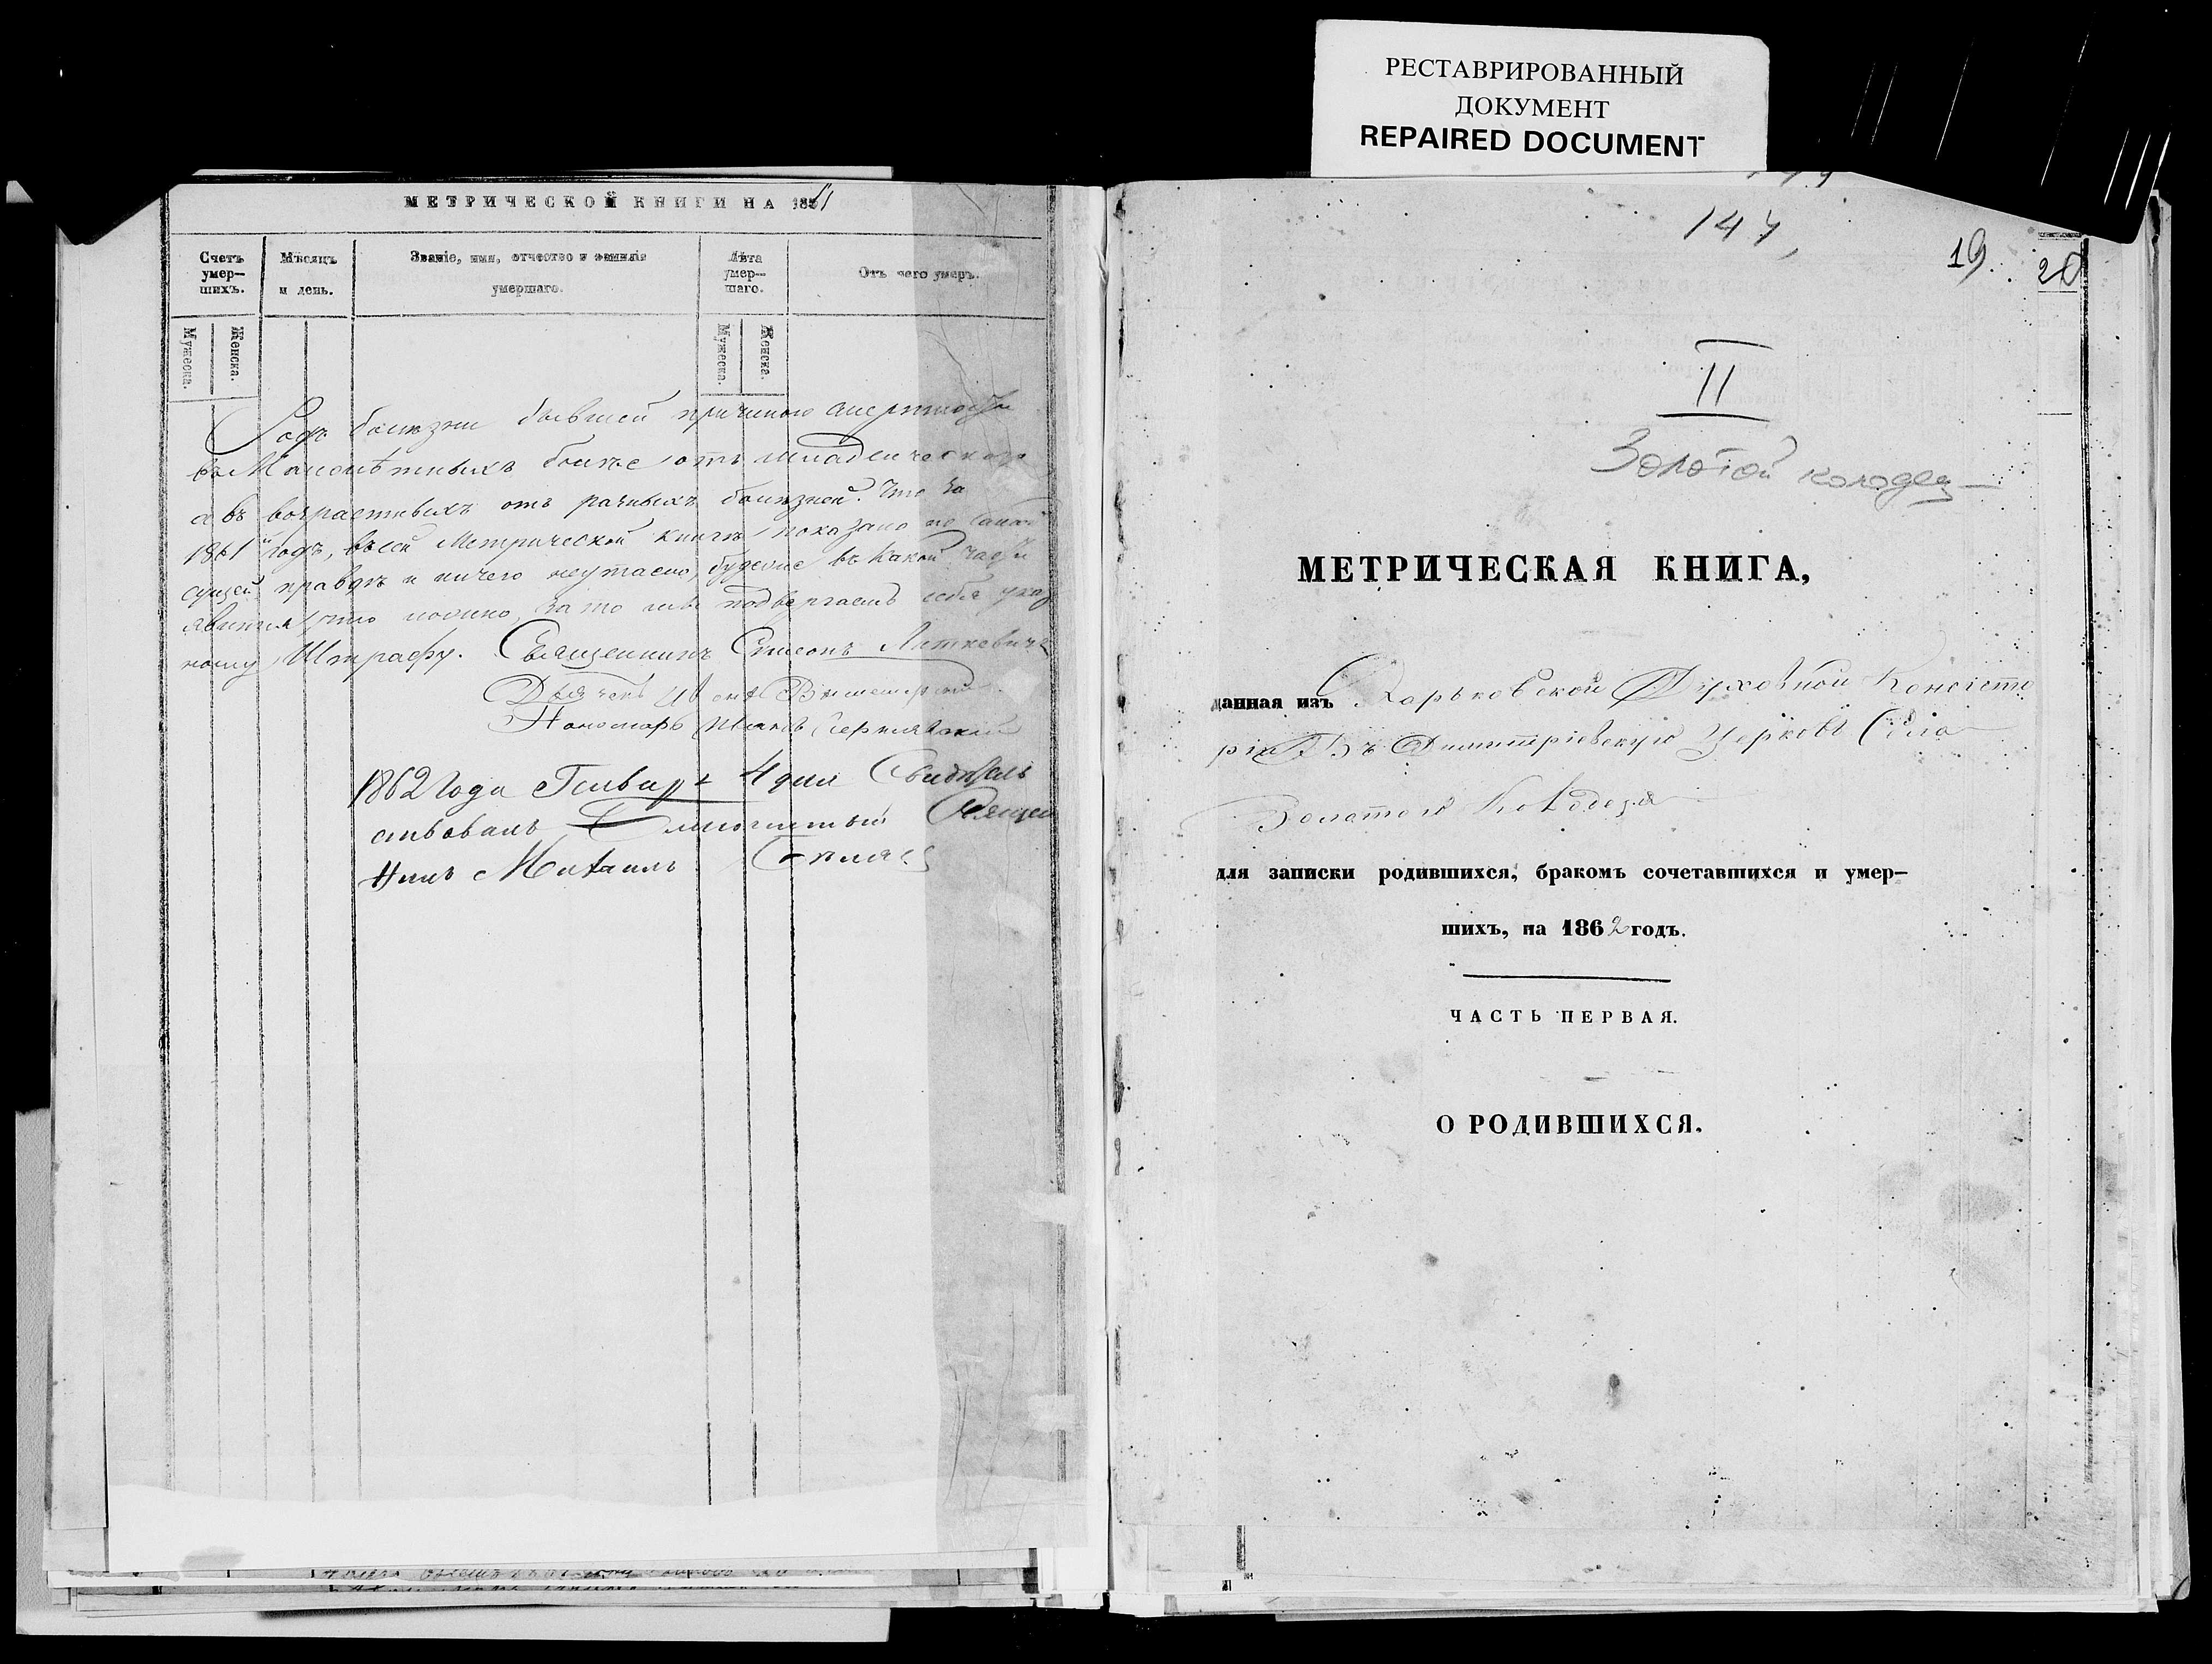 РЕСТАВРИРОВАННЫЙ
ДОКУМЕНТ
REPAIRED DOCUMENT
МЕТРИЧЕСКОЙ КНИГИ НА 1861
Счетъ умер— шихъ.
Мѣсяцъ и день.
Званіе, имя, отчество и фамилія умершаго.
Лѣта умер— шаго.
Отъ чего умеръ.
Мужеска.
Женска.
Мужеска.
Женска.
Родъ болѣзни бывшей причиною смертности
въ Малолѣтныхъ болѣе отъ младенческаго
а въ возрастныхъ отъ разныхъ болѣзней. Что за
1861й годъ, въ сей Метрической книгѣ показано по самой
сущей правдѣ и ничего неутаено, буде же въ какой части
явится что ложно, за то мы подвергаемъ себя указ
ному Штрафу. Священникъ Симеонъ Литкевичъ
Дьячекъ
Пономарь Иванъ Чернявский
1862 Года Генвар 4 дня Свидѣтель
ствовалъ Благочинный Священ
никъ Михаилъ
147,
19.
20
II
Золотой колодезь
МЕТРИЧЕСКАЯ КНИГА,
данная изъ Харьковской Духовной Консисто
ріи Въ Димитріевскую Церковь Села
Золотой Колодезя
для записки родившихся, бракомъ сочетавшихся и умер—
шихъ, на 1862 годъ.
ЧАСТЬ ПЕРВАЯ.
О РОДИВШИХСЯ.